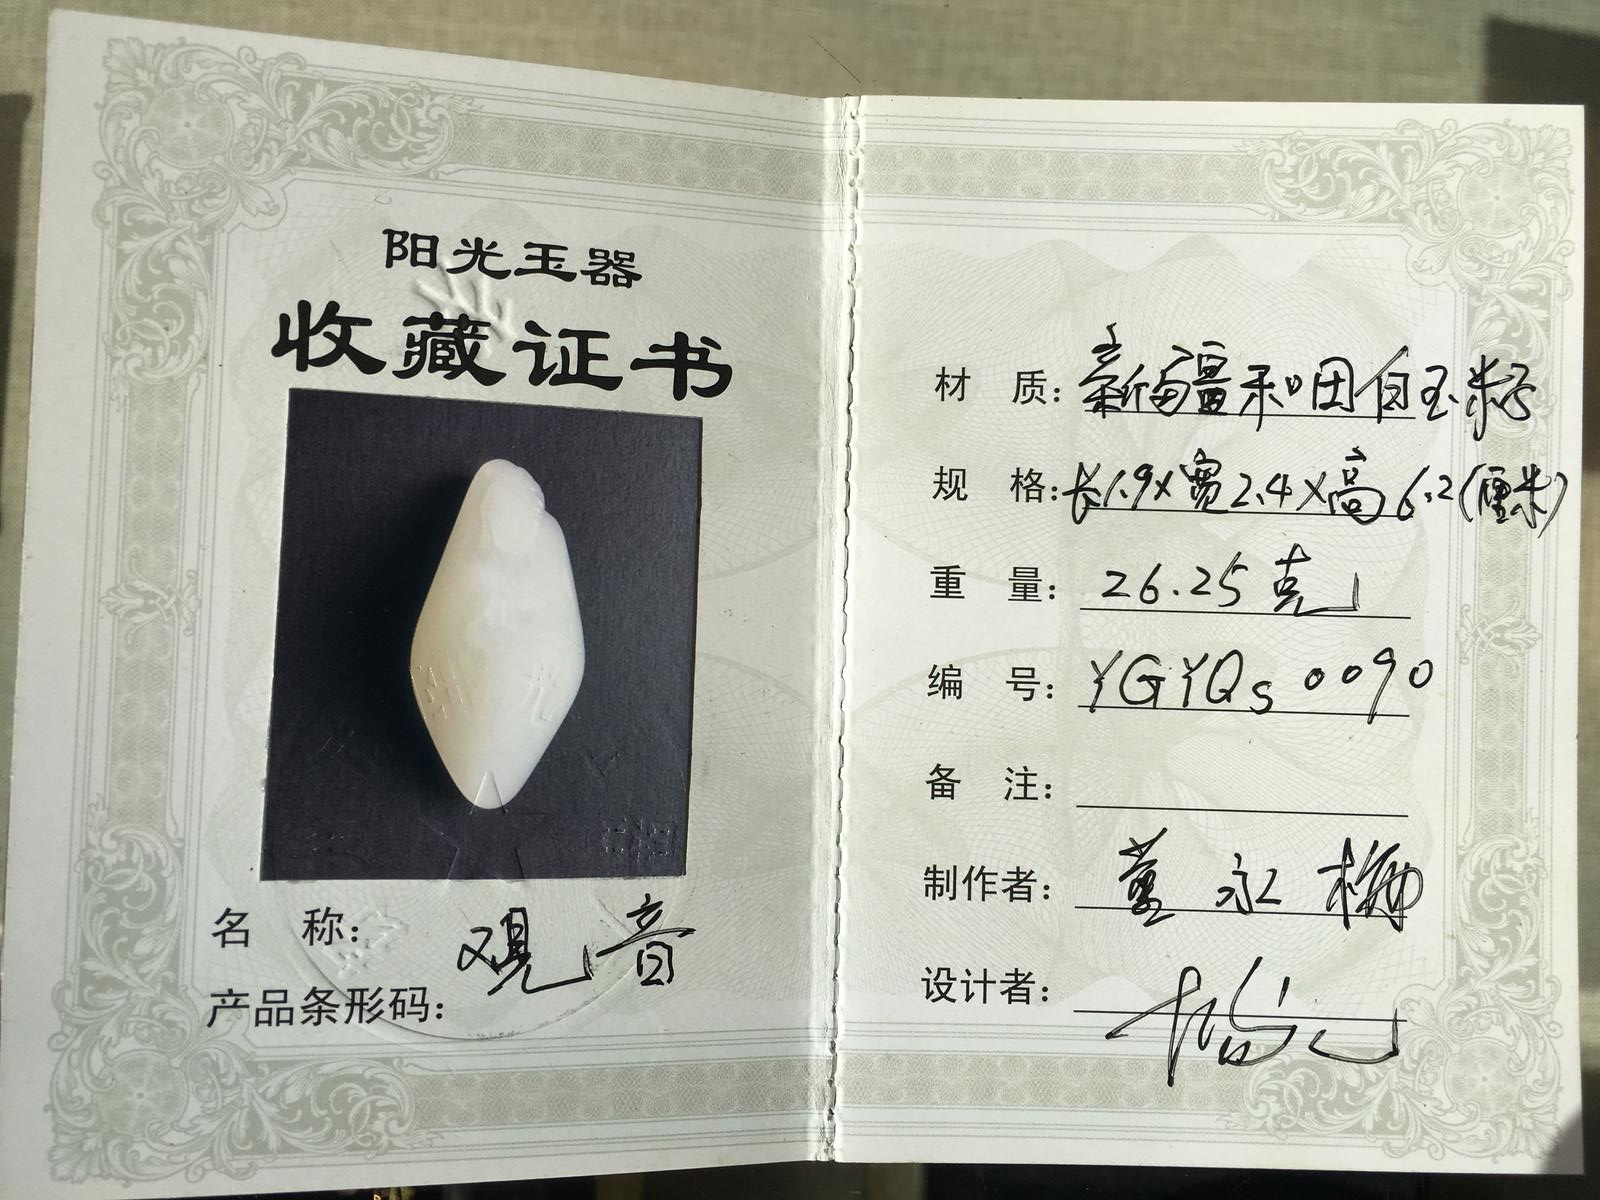 阳光玉器
收藏证书
名 称: 观音
产品条形码:
材 质: 新疆和田白玉籽
规 格: 长1.9×宽2.4×高6.2(厘米)
重 量: 26.25克
编 号: YGYQs 0090
备 注:
制作者: 永梅
设计者: